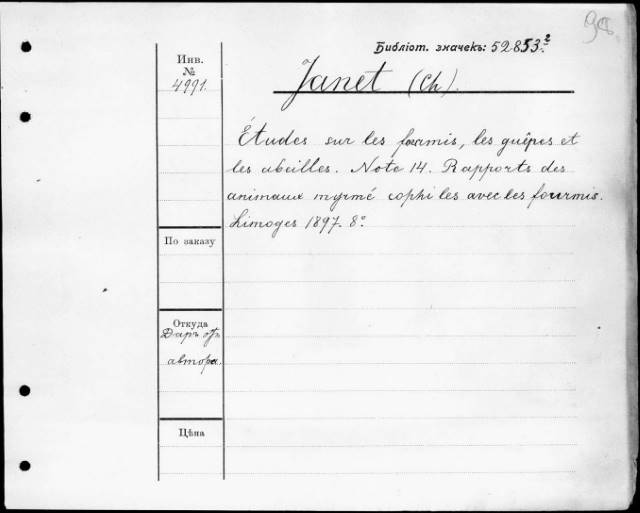 Библіот. значекъ: 52853²
Инв.
№
4991.
Janet (Ch).
Études sur les fourmis, les guêpes et
les abeilles. Note 14. Rapports des
animaux myrmé cophiles avec les fourmis.
Limoges 1897. 8°
По заказу
Откуда
Даръ отъ
автора.
Цѣна